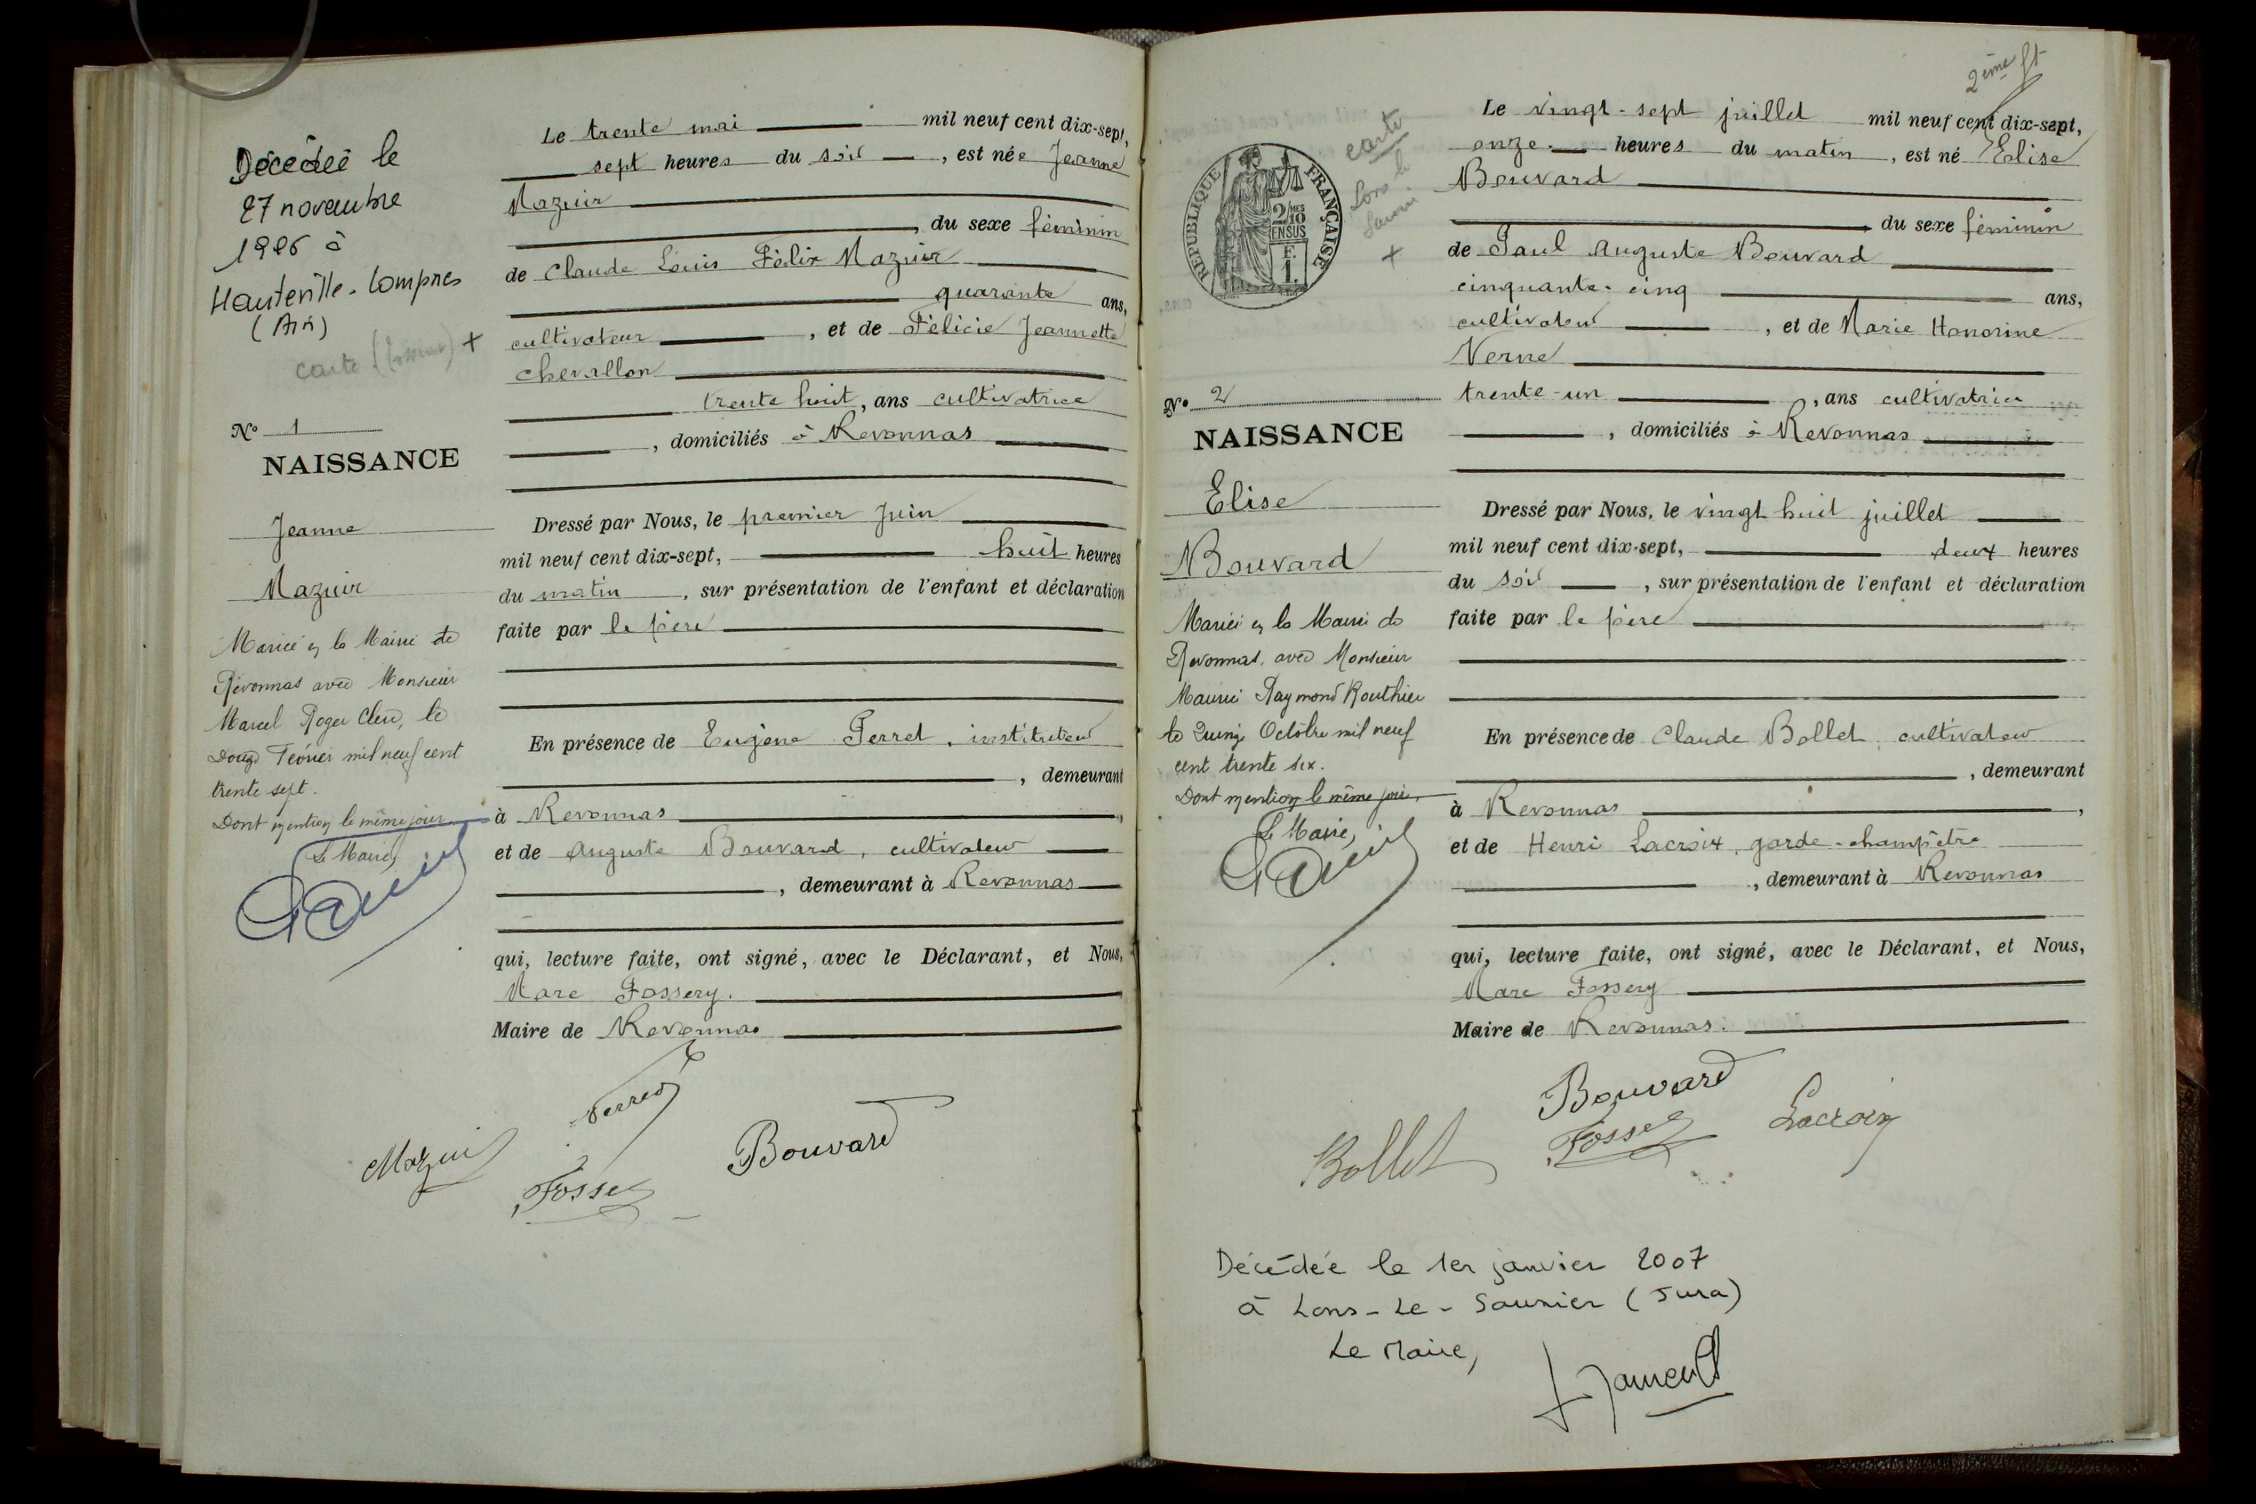 Décédée le
27 novembre
à
Hauteville-Lompnes
(Ain)
carte
+
N° 1
NAISSANCE
Jeanne
Mazuir
Mariée en la Mairie de
Revonnas avec Monsieur
Marcel Roger Clerc, le
Douze Février mil neuf cent
trente sept.
Dont mention le même jour
Le Maire,
Le trente mai mil neuf cent dix-sept,
sept heures du soir, est née Jeanne
Mazuir
, du sexe féminin
de Claude Louis Félix Mazuir
quarante ans,
cultivateur, et de Félicie Jeannette
Chevallon
trente huit, ans cultivatrice
, domiciliés à Revonnas
Dressé par Nous, le premier Juin
mil neuf cent dix-sept, huit heures
du matin, sur présentation de l'enfant et déclaration
faite par le père
En présence de Eugène Perret, instituteur
, demeurant
à Revonnas,
et de Auguste Bouvard, cultivateur
, demeurant à Revonnas
qui, lecture faite, ont signé, avec le Déclarant, et Nous,
Marc Fossery.
Maire de Revonnas
Perret
Mazuir
Bouvard
Fossery
2ème ft
carte
Lons le
Saunier
+
RÉPUBLIQUE FRANÇAISE
2/10 MES
EN SUS
F.
1.
N° 2
NAISSANCE
Elise
Bouvard
Mariée en la Mairie de
Revonnas, avec Monsieur
Maurice Raymond Routhier
le Quinze Octobre mil neuf
cent trente six.
Dont mention le même jour,
Le Maire,
Le vingt-sept juillet mil neuf cent dix-sept,
onze heures du matin, est né Elise
Bouvard
, du sexe féminin
de Paul Auguste Bouvard
cinquante-cinq ans,
cultivateur, et de Marie Honorine
Verne
trente-un, ans cultivatrice
, domiciliés à Revonnas
Dressé par Nous, le vingt huit juillet
mil neuf cent dix-sept, deux heures
du soir, sur présentation de l'enfant et déclaration
faite par le père
En présence de Claude Bollet, cultivateur
, demeurant
à Revonnas,
et de Henri Lacroix, garde-champêtre
, demeurant à Revonnas
qui, lecture faite, ont signé, avec le Déclarant, et Nous,
Marc Fossery
Maire de Revonnas.
Bouvard
Bollet
Fossery
Lacroix
Décédée le 1er janvier 2007
à Lons-Le-Saunier (Jura)
Le Maire,